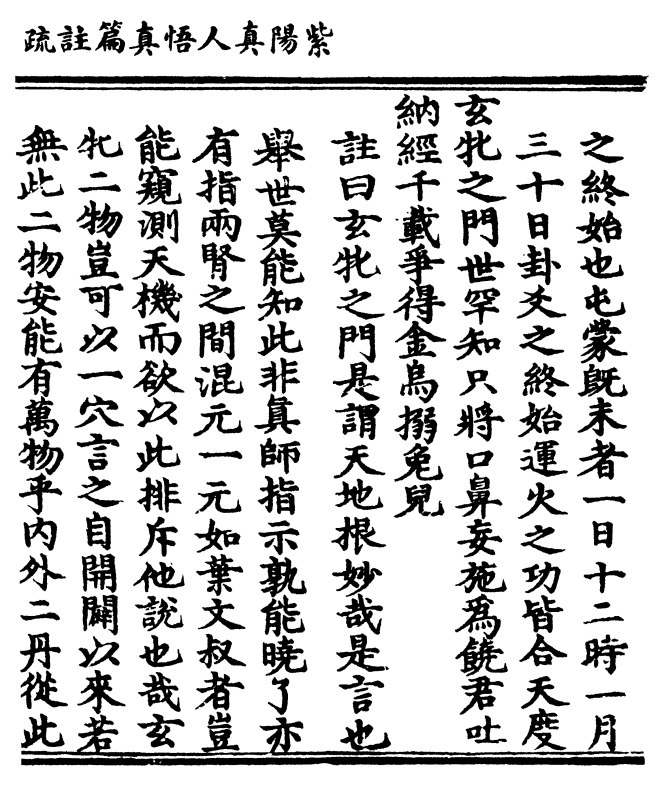 紫陽真人悟真篇註疏
之終始也屯蒙既未者一日十二時一月
三十日卦爻之終始運火之功皆合天度
玄牝之門世罕知只將口鼻妄施爲饒君吐
納經千載爭得金烏搦兔兒
註曰玄牝之門是謂天地根妙哉是言也
舉世莫能知此非真師指示孰能曉了亦
有指兩腎之間混元一元如葉文叔者豈
能窺測天機而欲以此排斥他說也哉玄
牝二物豈可以一穴言之自開闢以來若
無此二物安能有萬物乎內外二丹從此